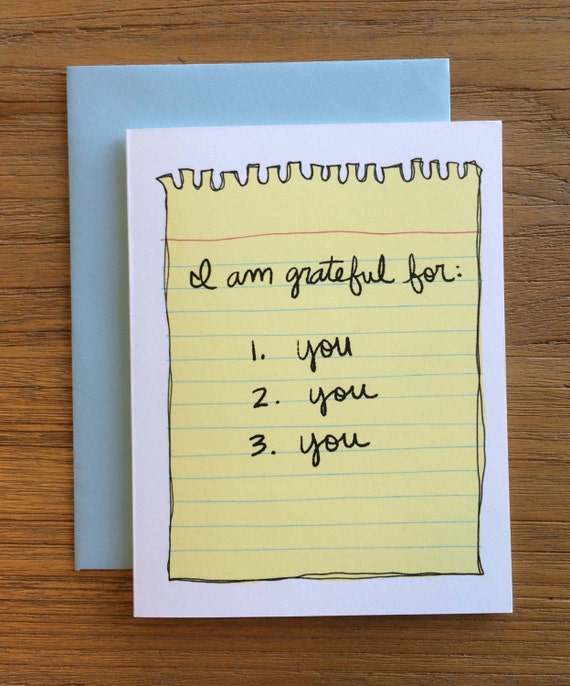 I am grateful for:
1. you
2. you
3. you